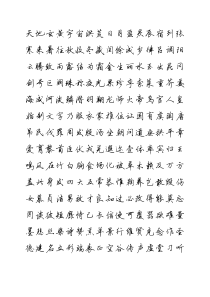 天地玄黄宇宙洪荒日月盈昃辰宿列张
寒来暑往秋收冬藏闰余成岁律吕调阳
云腾致雨露结为霜金生丽水玉出昆冈
剑号巨阙珠称夜光果珍李柰菜重芥姜
海咸河淡鳞潜羽翔龙师火帝鸟官人皇
始制文字乃服衣裳推位让国有虞陶唐
吊民伐罪周发殷汤坐朝问道垂拱平章
爱育黎首臣伏戎羌遐迩一体率宾归王
鸣凤在竹白驹食场化被草木赖及万方
盖此身发四大五常恭惟鞠养岂敢毁伤
女慕贞洁男效才良知过必改得能莫忘
罔谈彼短靡恃己长信使可覆器欲难量
墨悲丝染诗赞羔羊景行维贤克念作圣
德建名立形端表正空谷传声虚堂习听